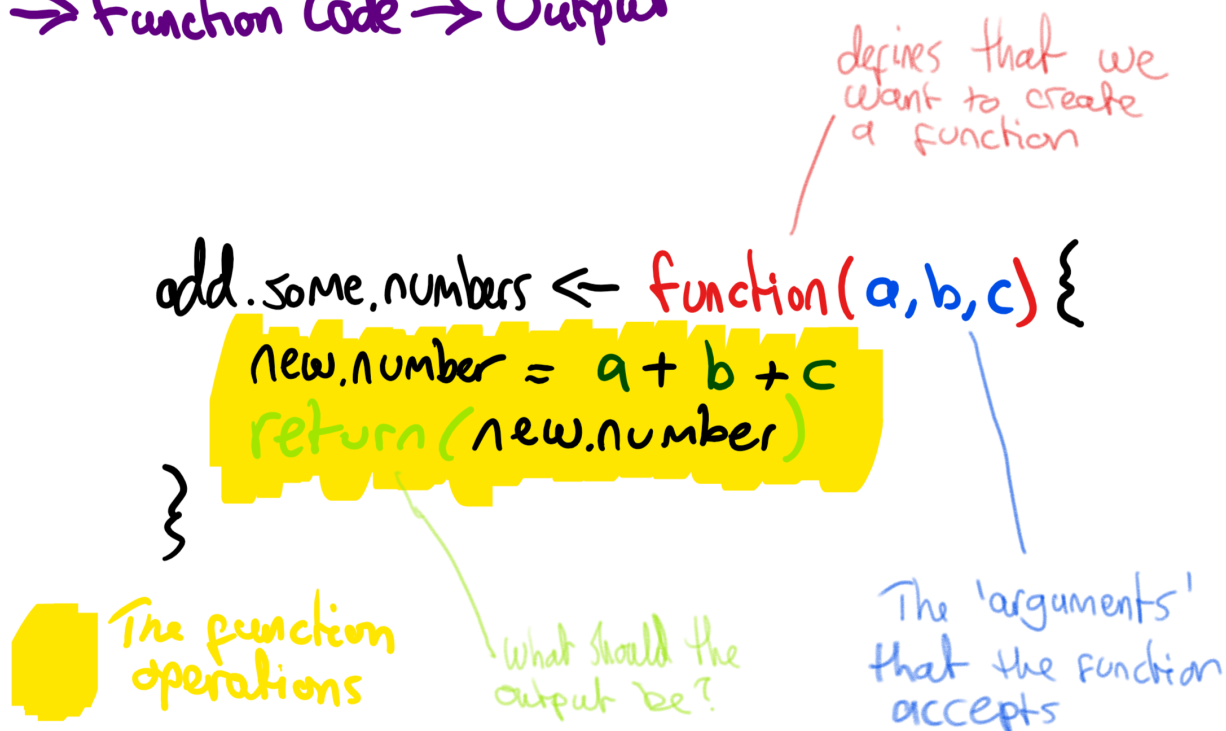 → Function Code → Output
defines that we
want to create
a function
add.some.numbers <- function(a,b,c) {
new.number = a + b + c
return(new.number)
}
The function
operations
what should the
output be?
The 'arguments'
that the function
accepts